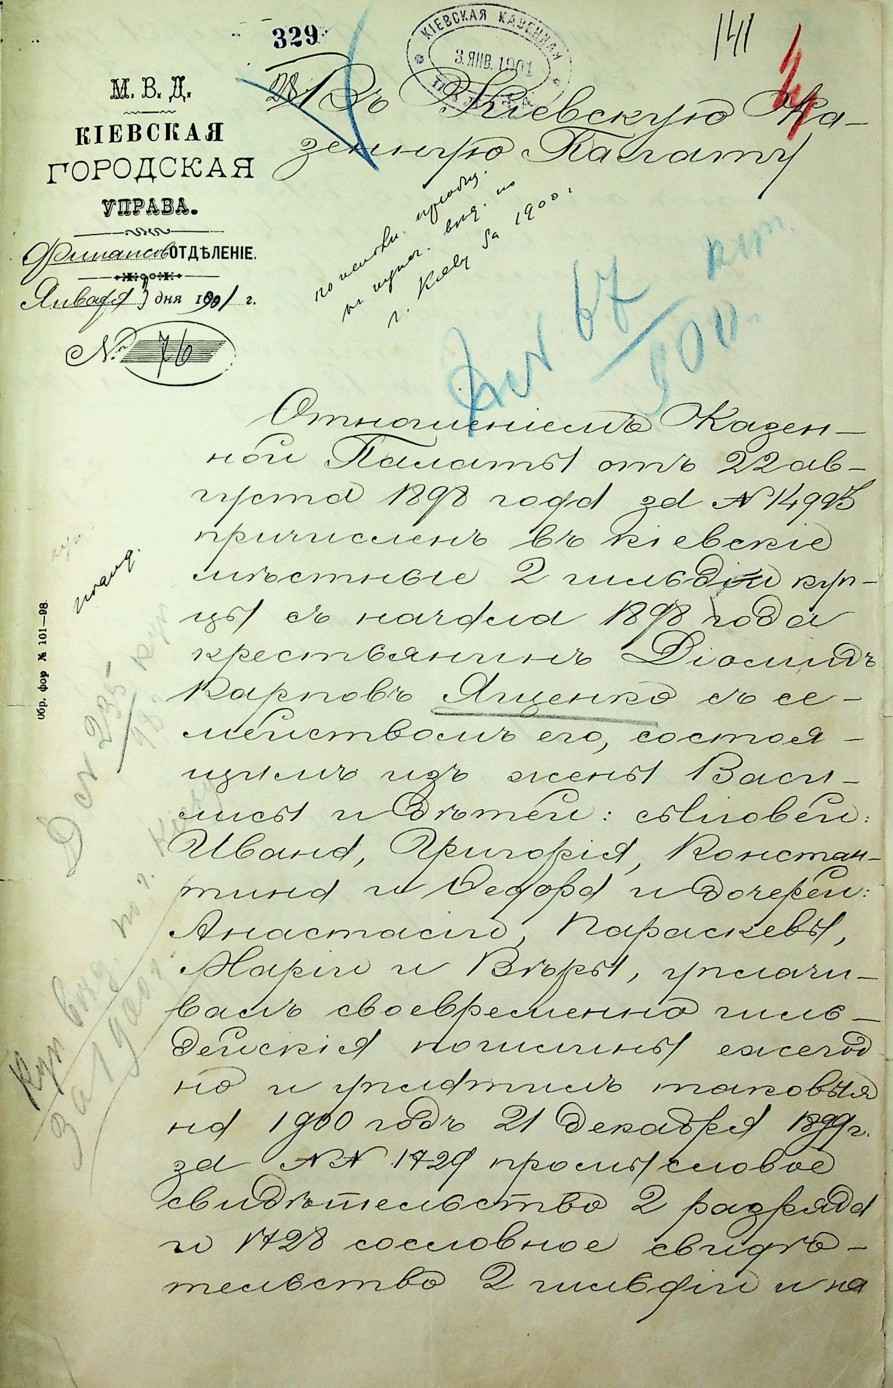 329
141
КІЕВСКАЯ КАЗЕННАЯ
3 ЯНВ. 1901
М. В. Д.
КІЕВСКАЯ
ГОРОДСКАЯ
УПРАВА.
Финансов ОТДѢЛЕНІЕ.
Января 3 дня 1901 г.
№ 76
Въ Кіевскую Ка-
зенную Палату
г. Кіеву за 1900 г.
67
900
Отношеніемъ Казен-
ной Палаты отъ 22 ав-
густа 1898 года за № 14993
причисленъ въ кіевскіе
мѣстные 2 гильдіи куп-
цы съ начала 1898 года
крестьянинъ Діомидъ
Карповъ Ященко съ се-
мействомъ его, состоя-
щимъ изъ жены Васи-
лисы и дѣтей: сыновей:
Ивана, Григорія, Констан-
тина и Ѳедора и дочерей:
Анастасіи, Параскевы,
Маріи и Вѣры, уплачи-
валъ своевременно гиль-
дейскія пошлины ежегод
но и уплатилъ таковыя
на 1900 годъ 21 декабря 1899 г.
за №№ 1729 промысловое
свидѣтельство 2 разряда
и 1728 сословное свидѣ-
тельство 2 гильдіи и на
Обр. фор № 101—98.
№ 235
по г. Кіеву
за 1900 г.